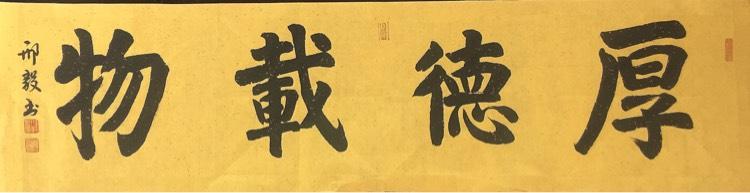 厚德載物
邢毅书